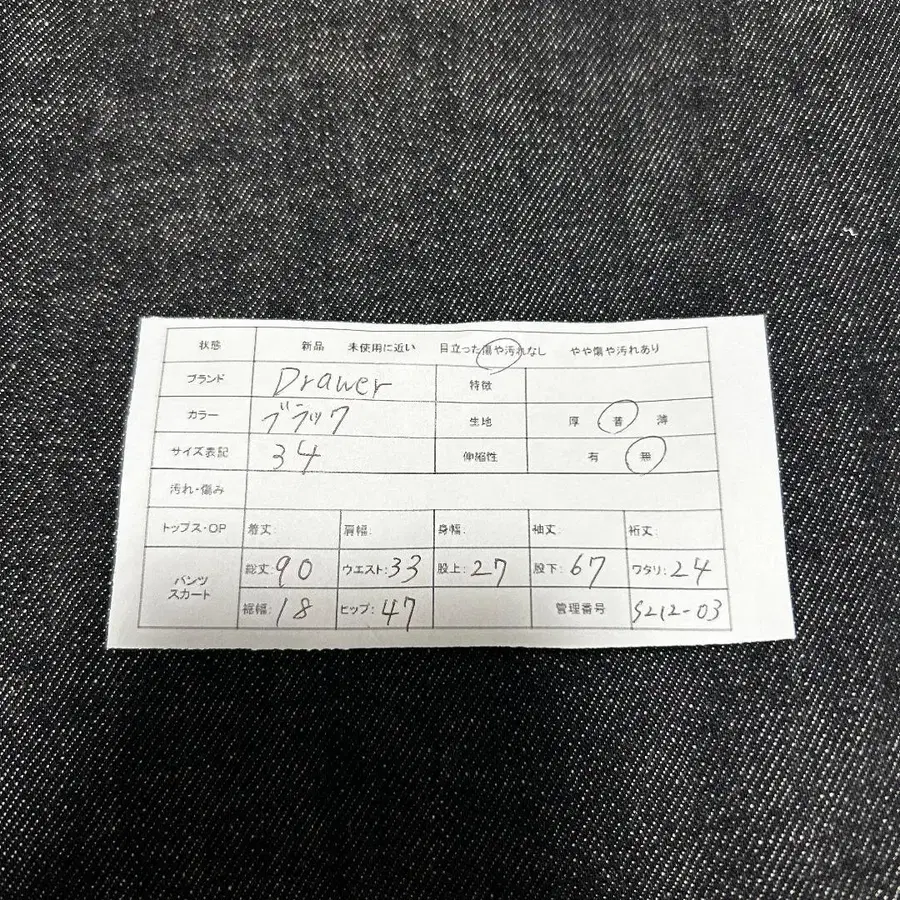 状態 新品 未使用に近い 目立った傷や汚れなし やや傷や汚れあり
ブランド Drawer 特徴
カラー ブラック 生地 厚 普 薄
サイズ表記 34 伸縮性 有 無
汚れ・傷み
トップス・OP 着丈: 肩幅: 身幅: 袖丈: 裄丈:
パンツ スカート 総丈:90 ウエスト:33 股上:27 股下:67 ワタリ:24
裾幅:18 ヒップ:47 管理番号 S212-03